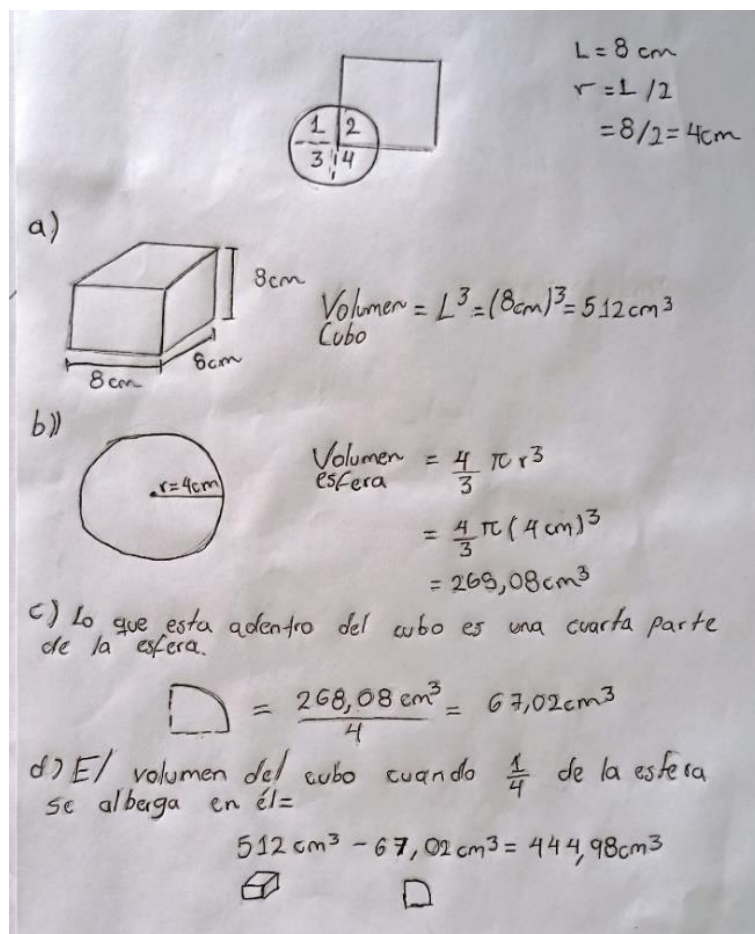 L = 8 cm
r = L /2
= 8/2 = 4cm
1 2
3 4
a)
8cm
8cm
8cm
Volumen Cubo = L³ = (8cm)³ = 512 cm³
b))
r=4cm
Volumen esfera = 4/3 π r³
= 4/3 π (4 cm)³
= 268,08 cm³
c) Lo que esta adentro del cubo es una cuarta parte
de la esfera.
= 268,08 cm³/4 = 67,02cm³
d) El volumen del cubo cuando 1/4 de la esfera
se alberga en él=
512 cm³ - 67,02 cm³ = 444,98cm³